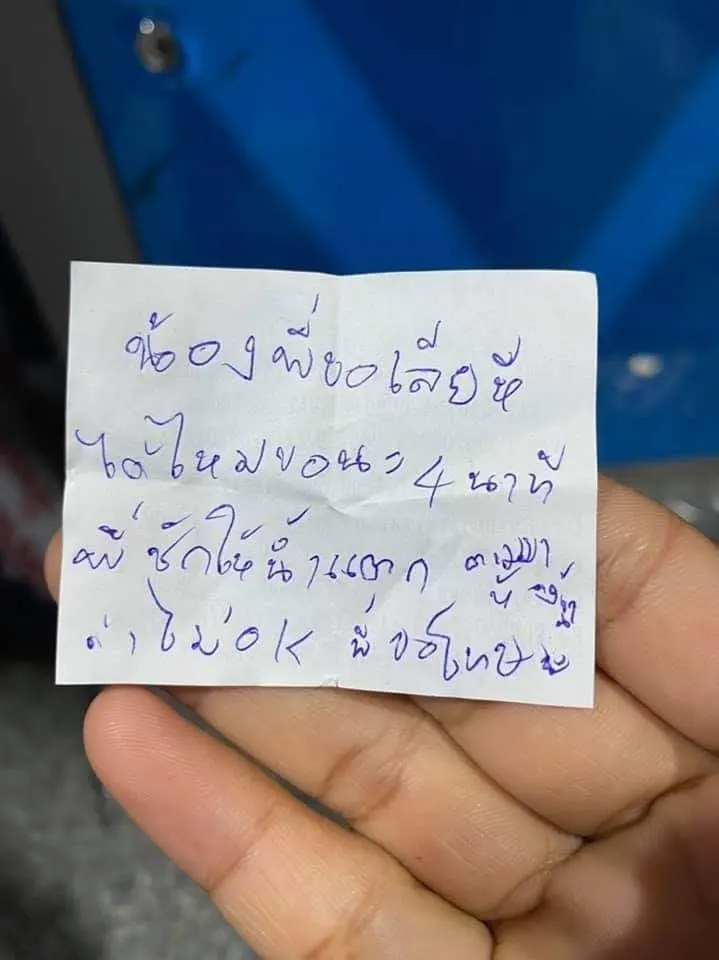 น้องพี่ขอเลียหี
ได้ไหมขอนะ 4 นาที
พี่ชักให้น้ำแตก ตามมา
ห้องน้ำ
ถ้าไม่ OK พี่ขอโทษนะ